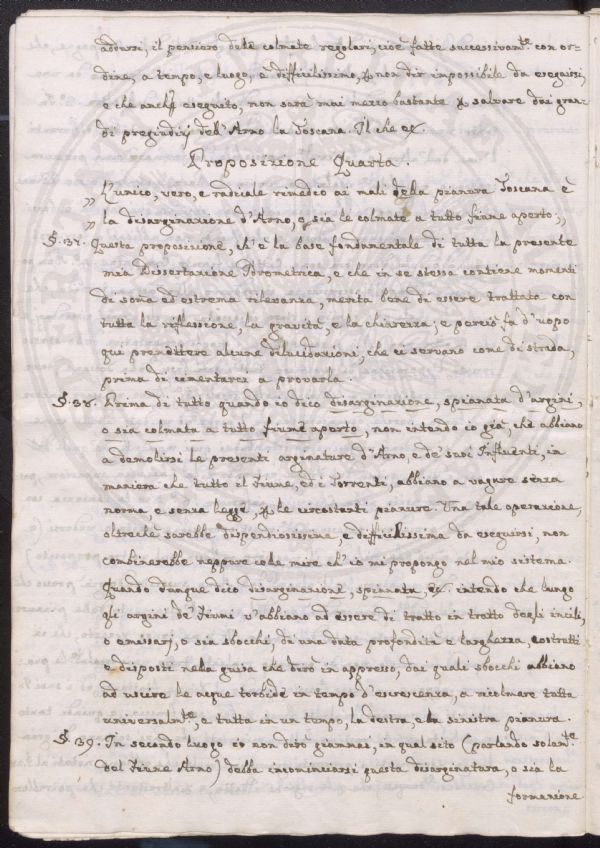 addursi, il pensiero delle colmate regolari, cioè fatte successivam.te con or-
dine, a tempo, e luogo, è difficilissimo, p non dir impossibile da eseguirsi,
e che anche eseguito, non sarà mai mezzo bastante p salvare dai gran-
di pregiudizj dell'Arno la Toscana. Il che &.
Proposizione Quarta
„ L'unico, vero, e radicale rimedio ai mali della pianura Toscana è
„ la disarginazione d'Arno, o sia le colmate a tutto fiume aperto. „
§. 37. Questa proposizione, ch'è la base fondamentale di tutta la presente
mia Dissertazione Idrometrica, e che in se stessa contiene momenti
di soma ed estrema rilevanza, merita bene di essere trattata con
tutta la riflessione, la gravità, e la chiarezza; e perciò fa d'uopo
qui premettere alcune dilucidazioni, che ci servano come di strada,
prima di cimentarci a provarla.
§. 38. Prima di tutto quando io dico disarginazione, spianata d'argini,
o sia colmata a tutto fiume aperto, non intendo io già, che abbiano
a demolirsi le presenti arginature d'Arno, e de' suoi Influenti, in
maniera che tutto il Fiume, ed i Torrenti, abbiano a vagare senza
norma, e senza legge, p le circostanti pianure. Una tale operazione,
oltreche sarebbe dispendiosissima, e difficilissima da eseguirsi, non
combinerebbe neppure colle mire ch'io mi propongo nel mio sistema.
Quando dunque dico disarginazione, spianata, &. intendo che lungo
gli argini de' Fiumi v'abbiano ad essere di tratto in tratto degli incili,
o emissarj, o sia sbocchi, di una data profondità e larghezza, costrutti
e disposti nella guisa che dirò in appresso, dai quali sbocchi abbiano
ad uscire le acque torbide in tempo d'escrescenza, a ricolmare tutta
universalm.te, e tutta in un tempo, la destra, e la sinistra pianura.
§. 39. In secondo luogo io non dirò giammai, in qual sito (parlando solam.te
del Fiume Arno) debba incominciarsi questa disarginatura, o sia la
formazione